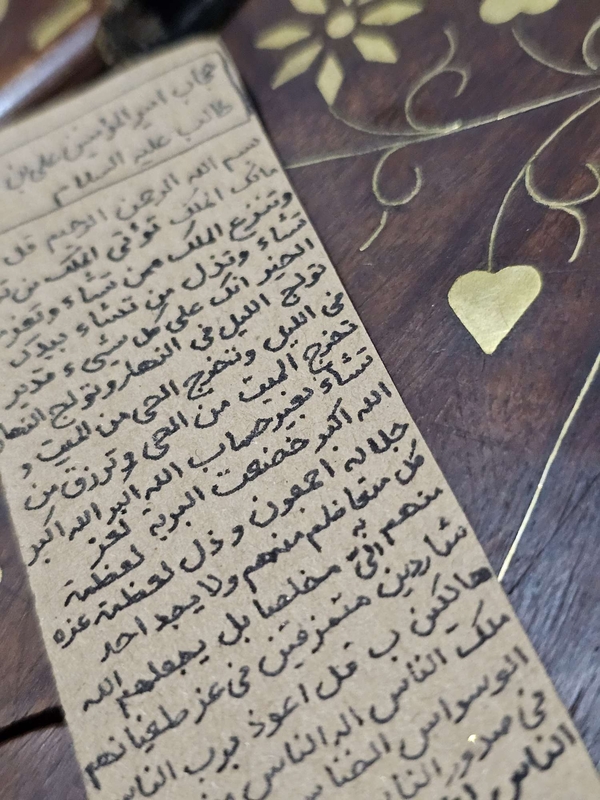 حجاب امير المؤمنين علي بن
طالب عليه السلام
بسم الله الرحمن الرحيم قل
مالك الملك تؤتي الملك من
وتنزع الملك ممن تشاء وتعز
تشاء وتذل من تشاء بيدك
الخير انك على كل شيء قدير
تولج الليل في النهار وتولج النهار
في الليل وتخرج الحي من الميت و
تخرج الميت من الحي وترزق من
تشاء بغير حساب الله اكبر الله اكبر
الله اكبر خضعت البرية لعز
جلاله اجمعون و ذل لعظمة عزه
كل متعاظم منهم ولا يجد احد
منهم الي مخلصا بل يجعلهم الله
شاردين متمزقين في عز طغيانهم
هالكين ب قل اعوذ برب الناس
ملك الناس اله الناس من
الوسواس الخناس
في صدور
الناس